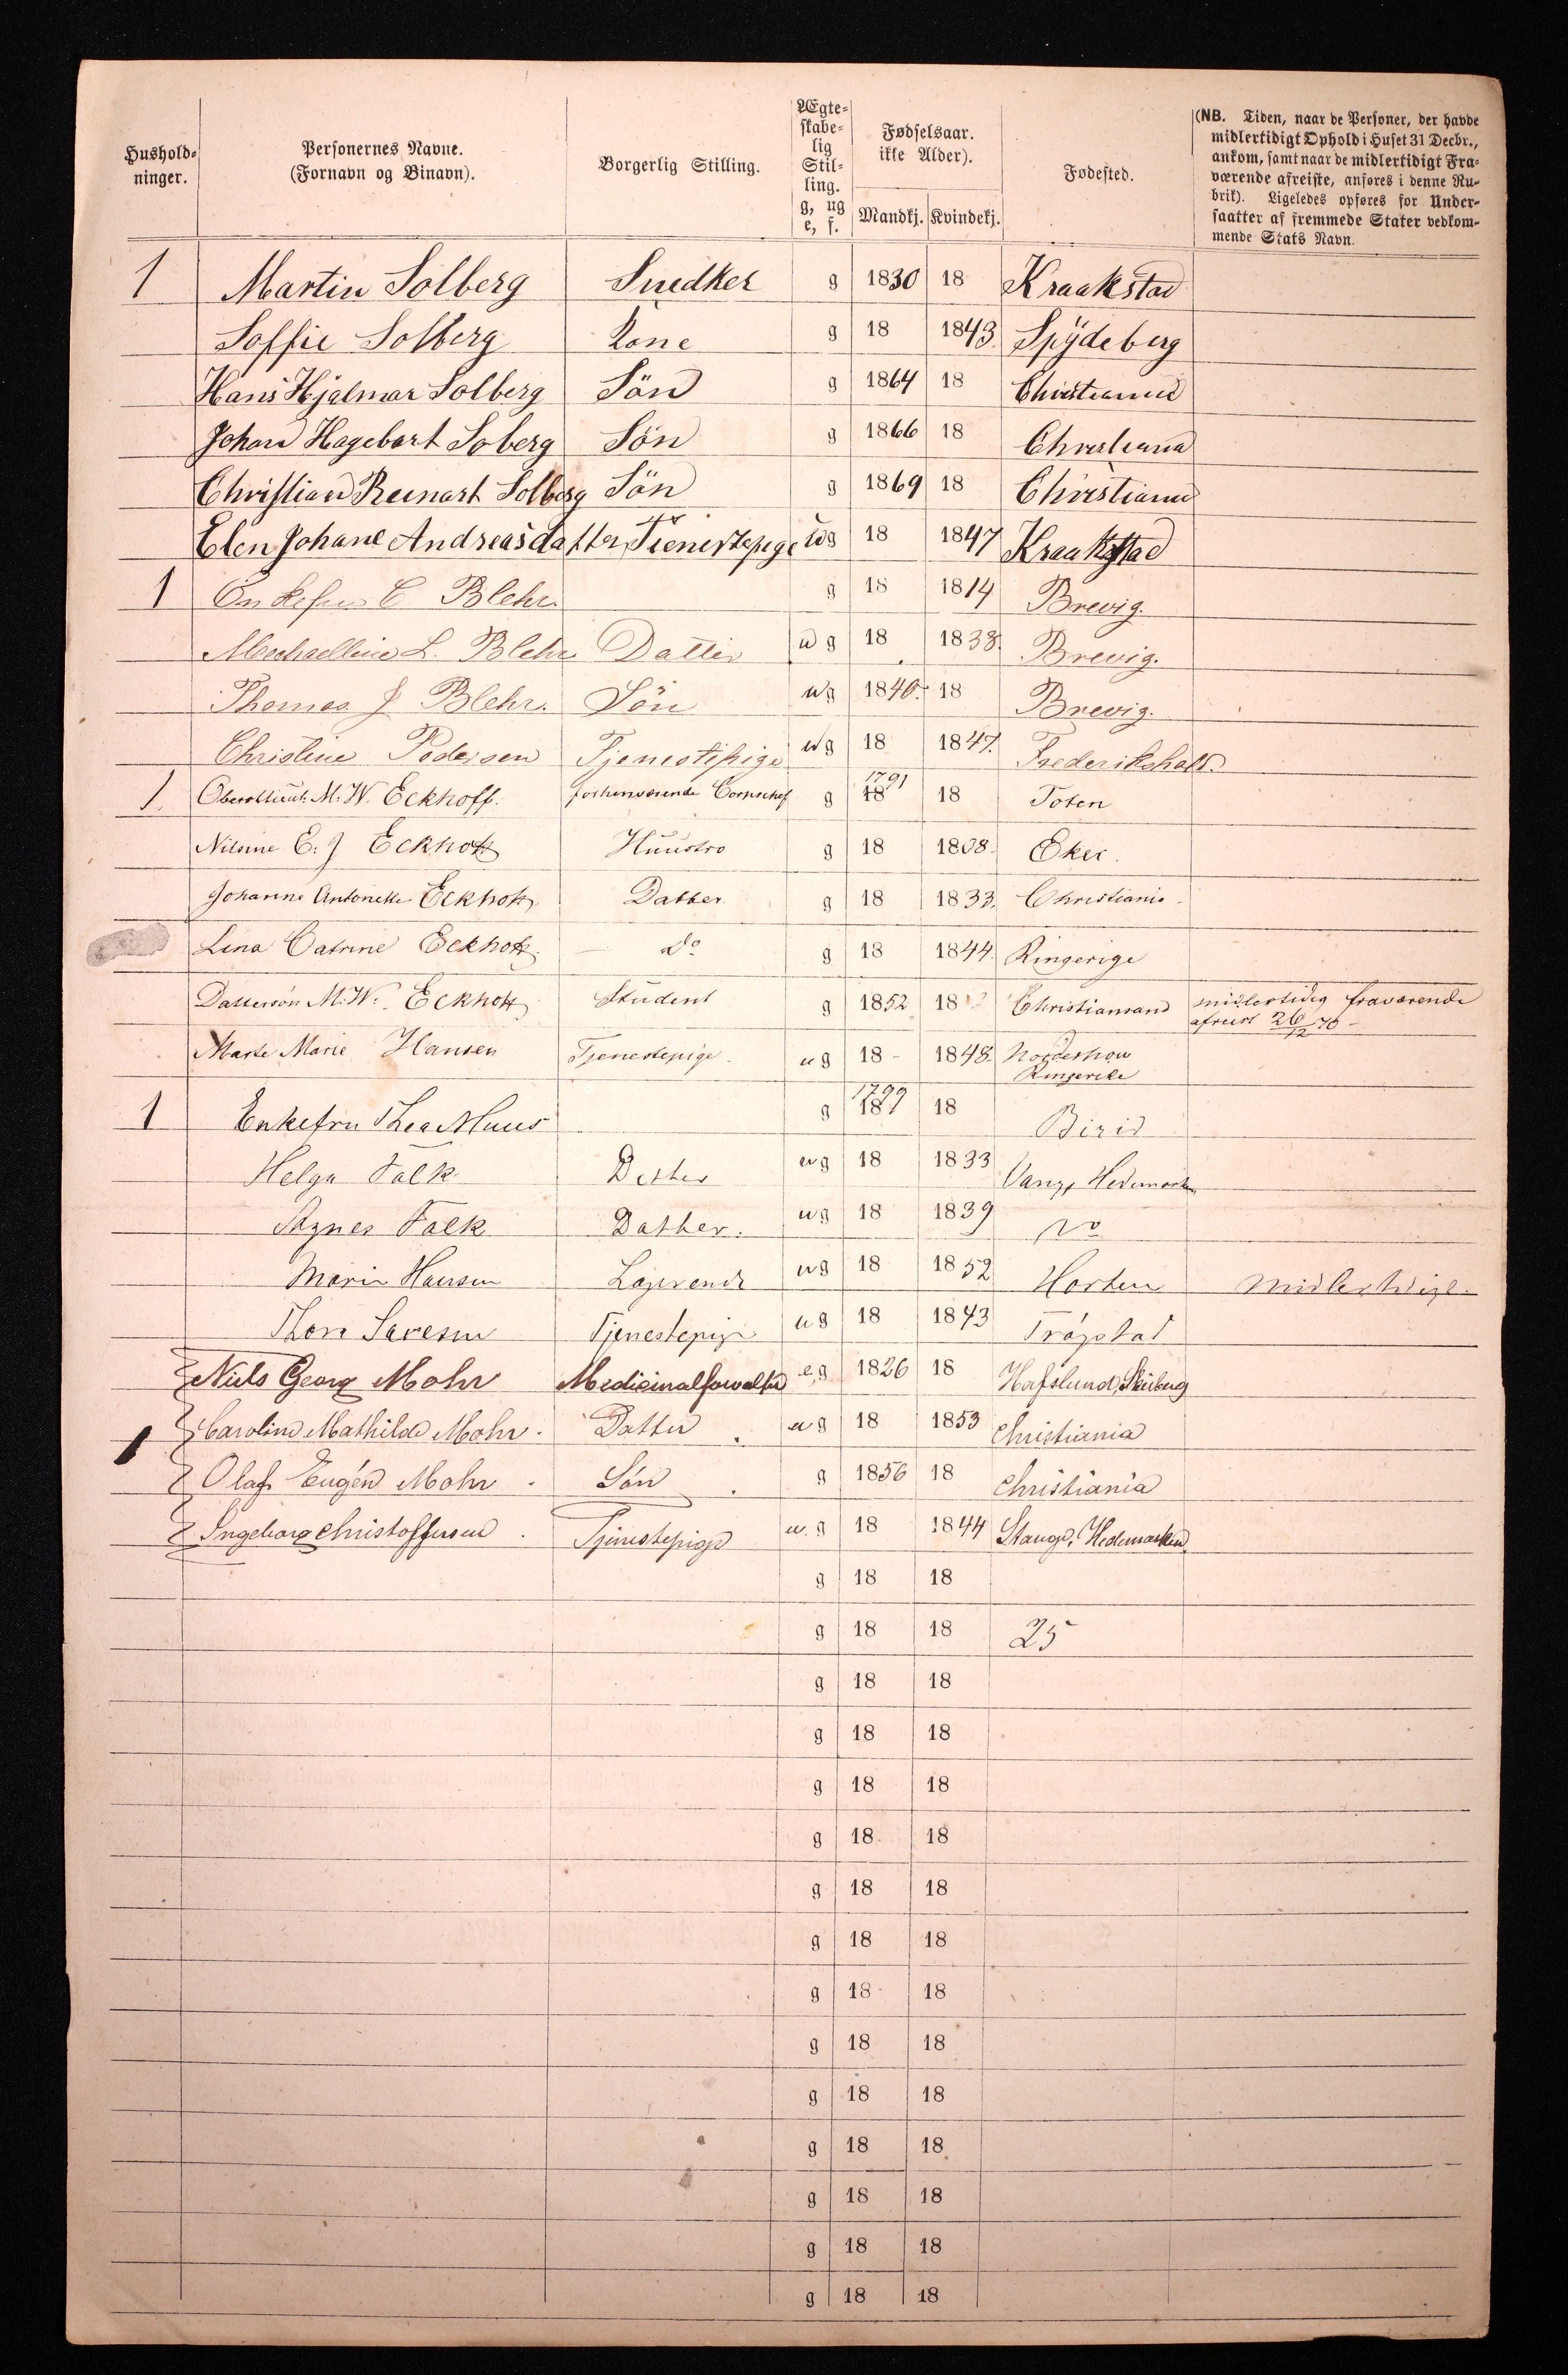 Hushold-
ninger.
Personernes Navne.
(Fornavn og Binavn).
Borgerlig Stilling.
Ægte-
skabe-
lig
Stil-
ling.
g, ug
e, f.
Fødselsaar.
ikke Alder).
Mandkj. Kvindekj.
Fødested.
(NB. Tiden, naar de Personer, der havde
midlertidigt Ophold i Huset 31 Decbr.,
ankom, samt naar de midlertidigt Fra-
værende afreiste, anføres i denne Ru-
brik). Ligeledes opføres for Under-
saatter af fremmede Stater vedkom-
mende Stats Navn.
1 Martin Solberg Snedker g 1830 18 Kraakstad
Soffie Solberg Kone g 18 1843. Spÿdeberg
Hans Hjalmar Solberg Sön g 1864 18 Christiania
Johan Hagebart Soberg Sön g 1866 18 Christiania
Christian Reinart Solberg Sön g 1869 18 Christiania
Elen Johane Andreasdatter Tienestepige ug 18 1847 Kraakstad
1 Enkefru C Blehr. g 18 1814 Brevig.
Mechaelline L. Blehr Datter ug 18 1838. Brevig.
Thomas J Blehr. Sön ug 1840. 18 Brevig.
Christine Pedersen Tjenestepige ug 18 1847. Frederikshald.
1. Oberstlieut. M. W. Eckhoff. forhenværende Corpschef g 1791 18 18 Toten
Nilsine E. J Eckhoff Huustro g 18 1808. Eker.
Johanne Antonette Eckhoff Datter g 18 1833. Christiania
Lina Catrine Eckhoff. Do g 18 1844. Ringerige
Dattersön M. W. Eckhoff Student g 1852 18 Christiansand midlertidig fraværende
afreist 26/12 70 -
Marte Marie Hansen Tjenestepige. ug 18 - 1848. Norderhow
Ringerike
1 Enkefru Thea Muus g 1799 18 18 Birid
Helga Falk Datter ug 18 1833 Vang, Hedemarken
Agnes Falk Datter. ug 18 1839 Do
Marie Hansen Logerende ug 18 1852 Horten Midlertidigt.
Thora Tjenestepige ug 18 1843 Trögstad
Niels Georg Mohr Medicinalforvalter e g 1826 18 Hafslund, Skieberg
1 Caroline Mathilde Mohr. Datter. ug 18 1853 Christiania
Olaf Eugén Mohr. Sön. g 1856 18 Christiania
Ingeborg Christoffersen. Tjenestepige u. g 18 1844 Stange, Hedemarken.
g 18 18
g 18 18 25
g 18 18
g 18 18
g 18 18
g 18 18
g 18 18
g 18 18
g 18 18
g 18 18
g 18 18
g 18 18
g 18 18
g 18 18
g 18 18